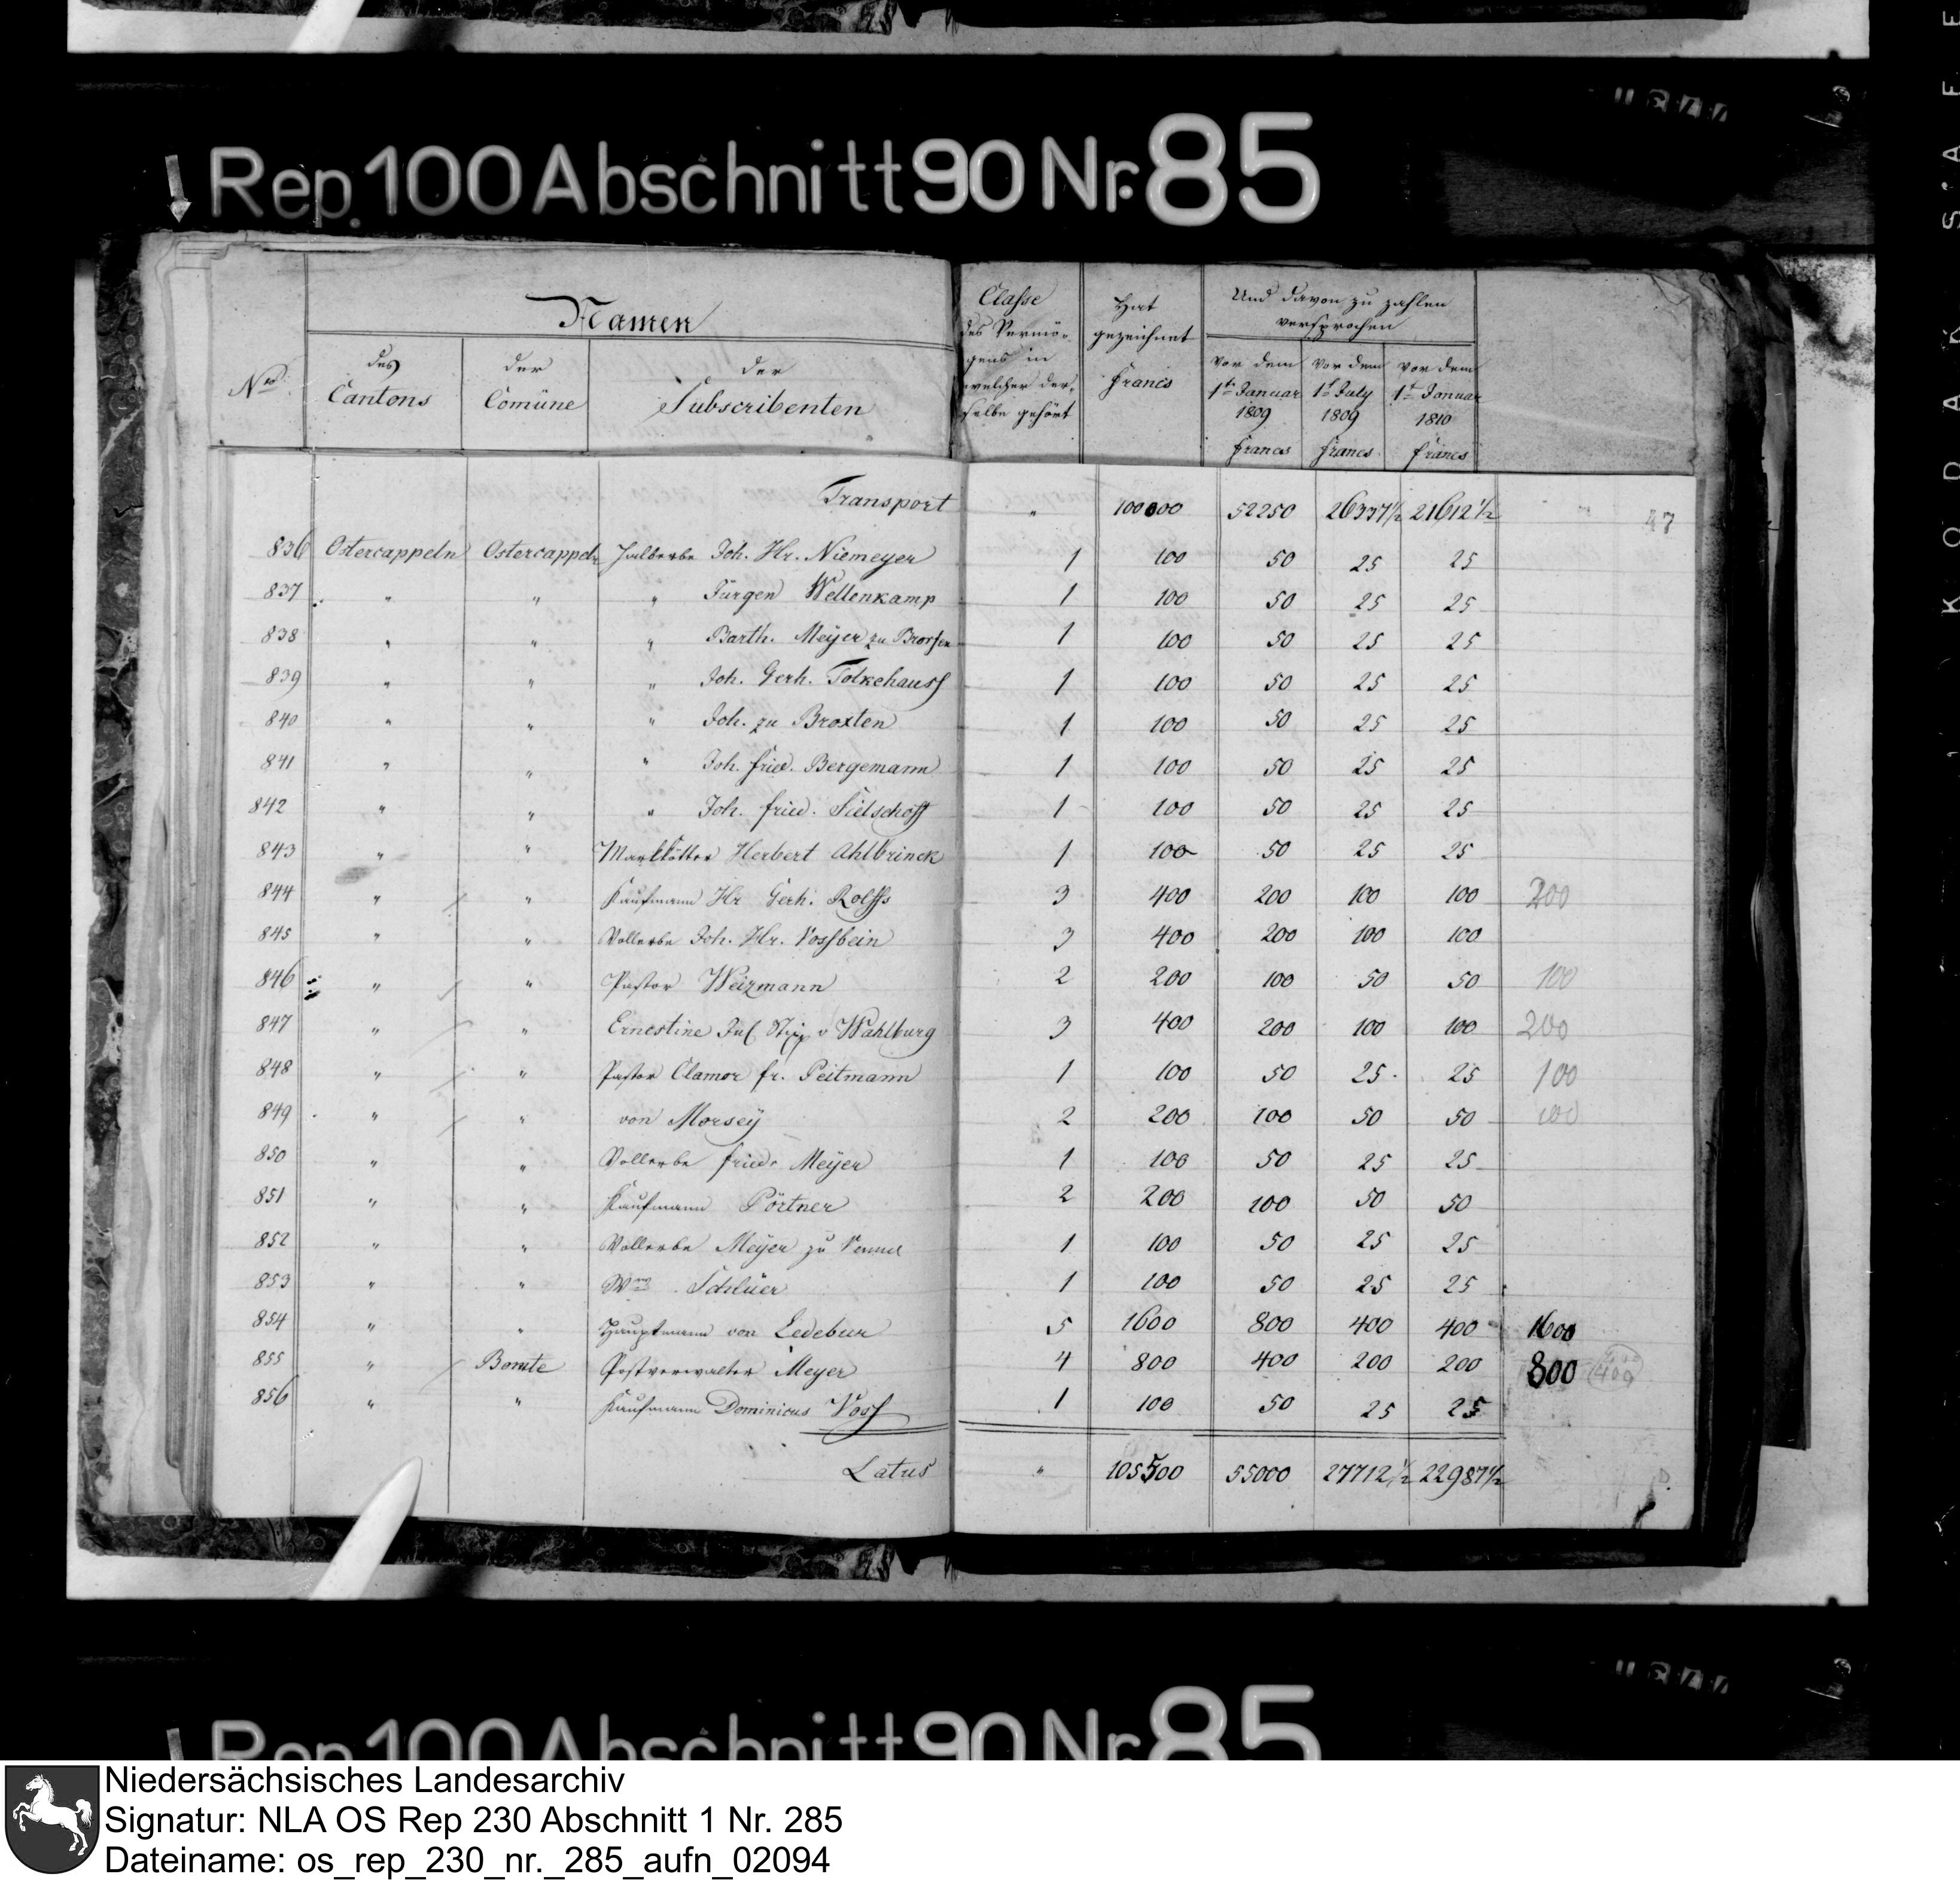 Rep. 100 Abschnitt 90 Nr. 85
Namen
Nro. des Cantons der Comüne der Subscribenten
Classe des Vermögens in welcher derselbe gehört
Hat gezeichnet Francs
Und davon zu zahlen versprochen
vor dem 1ten Januar 1809 Francs
vor dem 1t July 1809 Francs
vor dem 1t Januar 1810 Francs
Transport " 100000 52250 26337½ 21612½
47
836 Ostercappeln Ostercappeln Halberbe Joh. Hr. Niemeyer 1 100 50 25 25
837 " " " Jürgen Wellenkamp 1 100 50 25 25
838 " " " Barth. Meÿer zu 1 100 50 25 25
839 " " " Joh. Gerh. 1 100 50 25 25
840 " " " Joh. zu Broxten 1 100 50 25 25
841 " " " Joh. Fried. Bergemann 1 100 50 25 25
842 " " " Joh. Fried. 1 100 50 25 25
843 " " Markkötter Herbert Ahlbrinck 1 100 50 25 25
844 " " Kaufmann Hr Gerh. Rolffs 3 400 200 100 100 200
845 " " Vollerbe Joh. Hr. Vosfbein 3 400 200 100 100
846 " " Pastor Weizmann 2 200 100 50 50 100
847 " " Ernestine v Wahlburg 3 400 200 100 100 200
848 " " Pastor Clamor Fr. Peitmann 1 100 50 25 25 100
849 " " von Morseÿ 2 200 100 50 50 100
850 " " Vollerbe Fried. Meÿer 1 100 50 25 25
851 " " Kaufmann Pörtner 2 200 100 50 50
852 " " Vollerbe Meÿer zu 1 100 50 25 25
853 " " Schlüer 1 100 50 25 25
854 " " Hauptmann von Ledebur 5 1600 800 400 400 1600
855 " Bomte Postverwalter Meyer 4 800 400 200 200 800 400
856 " " Kaufmann Dominicus Vosf 1 100 50 25 25
Latus " 105500 55000 27712½ 22987½
Rep. 100 Abschnitt 90 Nr. 85
KODAK SAFE
Niedersächsisches Landesarchiv
Signatur: NLA OS Rep 230 Abschnitt 1 Nr. 285
Dateiname: os_rep_230_nr._285_aufn_02094